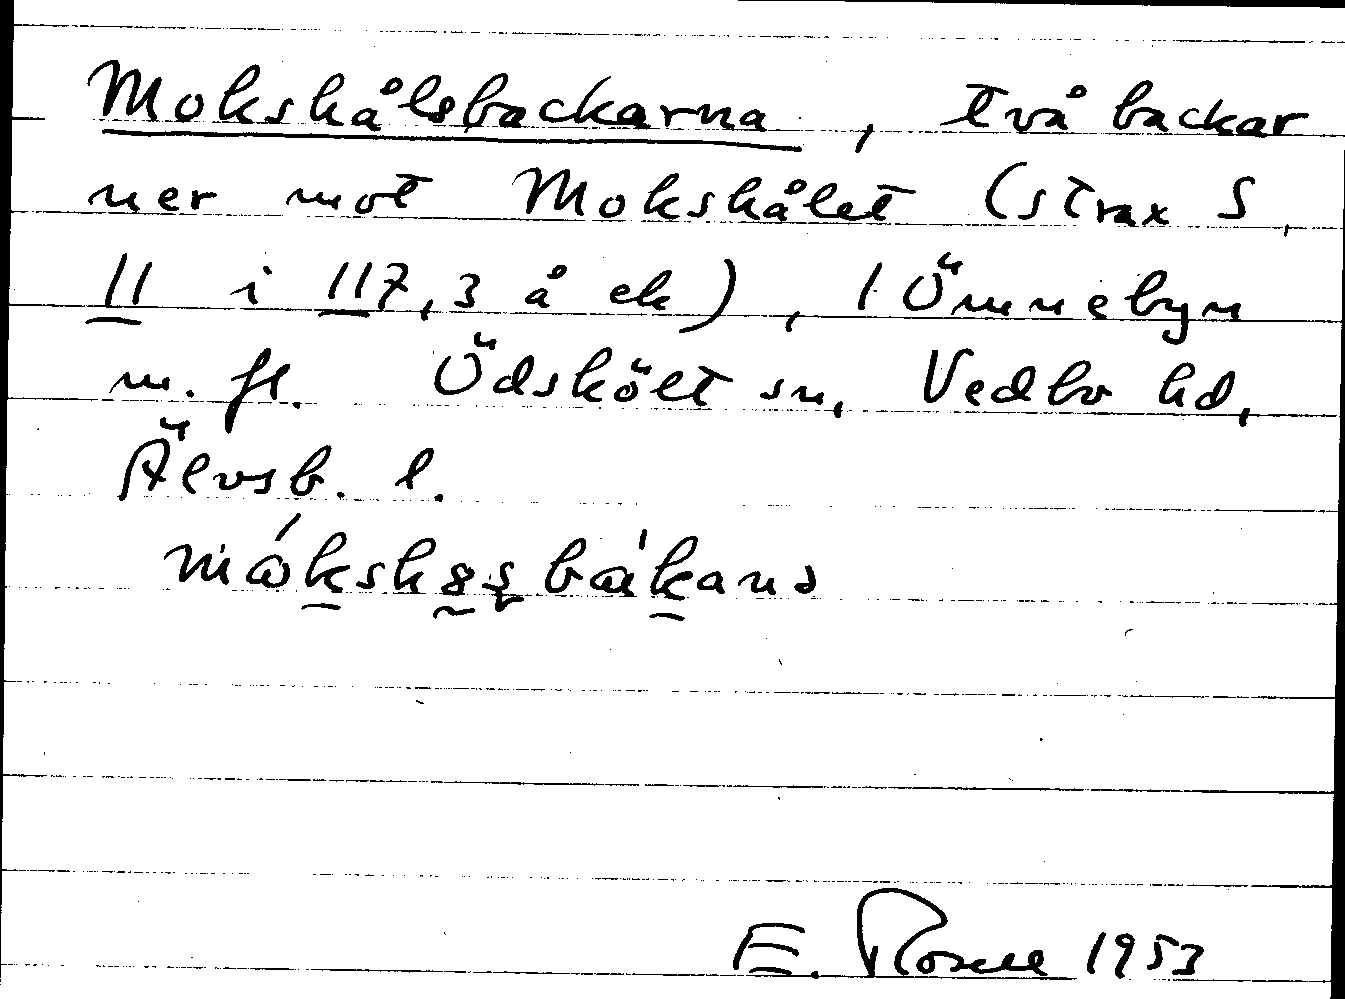 Mokshålsbackarna, två backar
ner mot Mokshålet (strax S,
11 i 117,3 å ek), 1 Ömmebyn
m. fl. Ödskölt sn, Vedbo hd,
Älvsb. l.
E. Rosell 1953